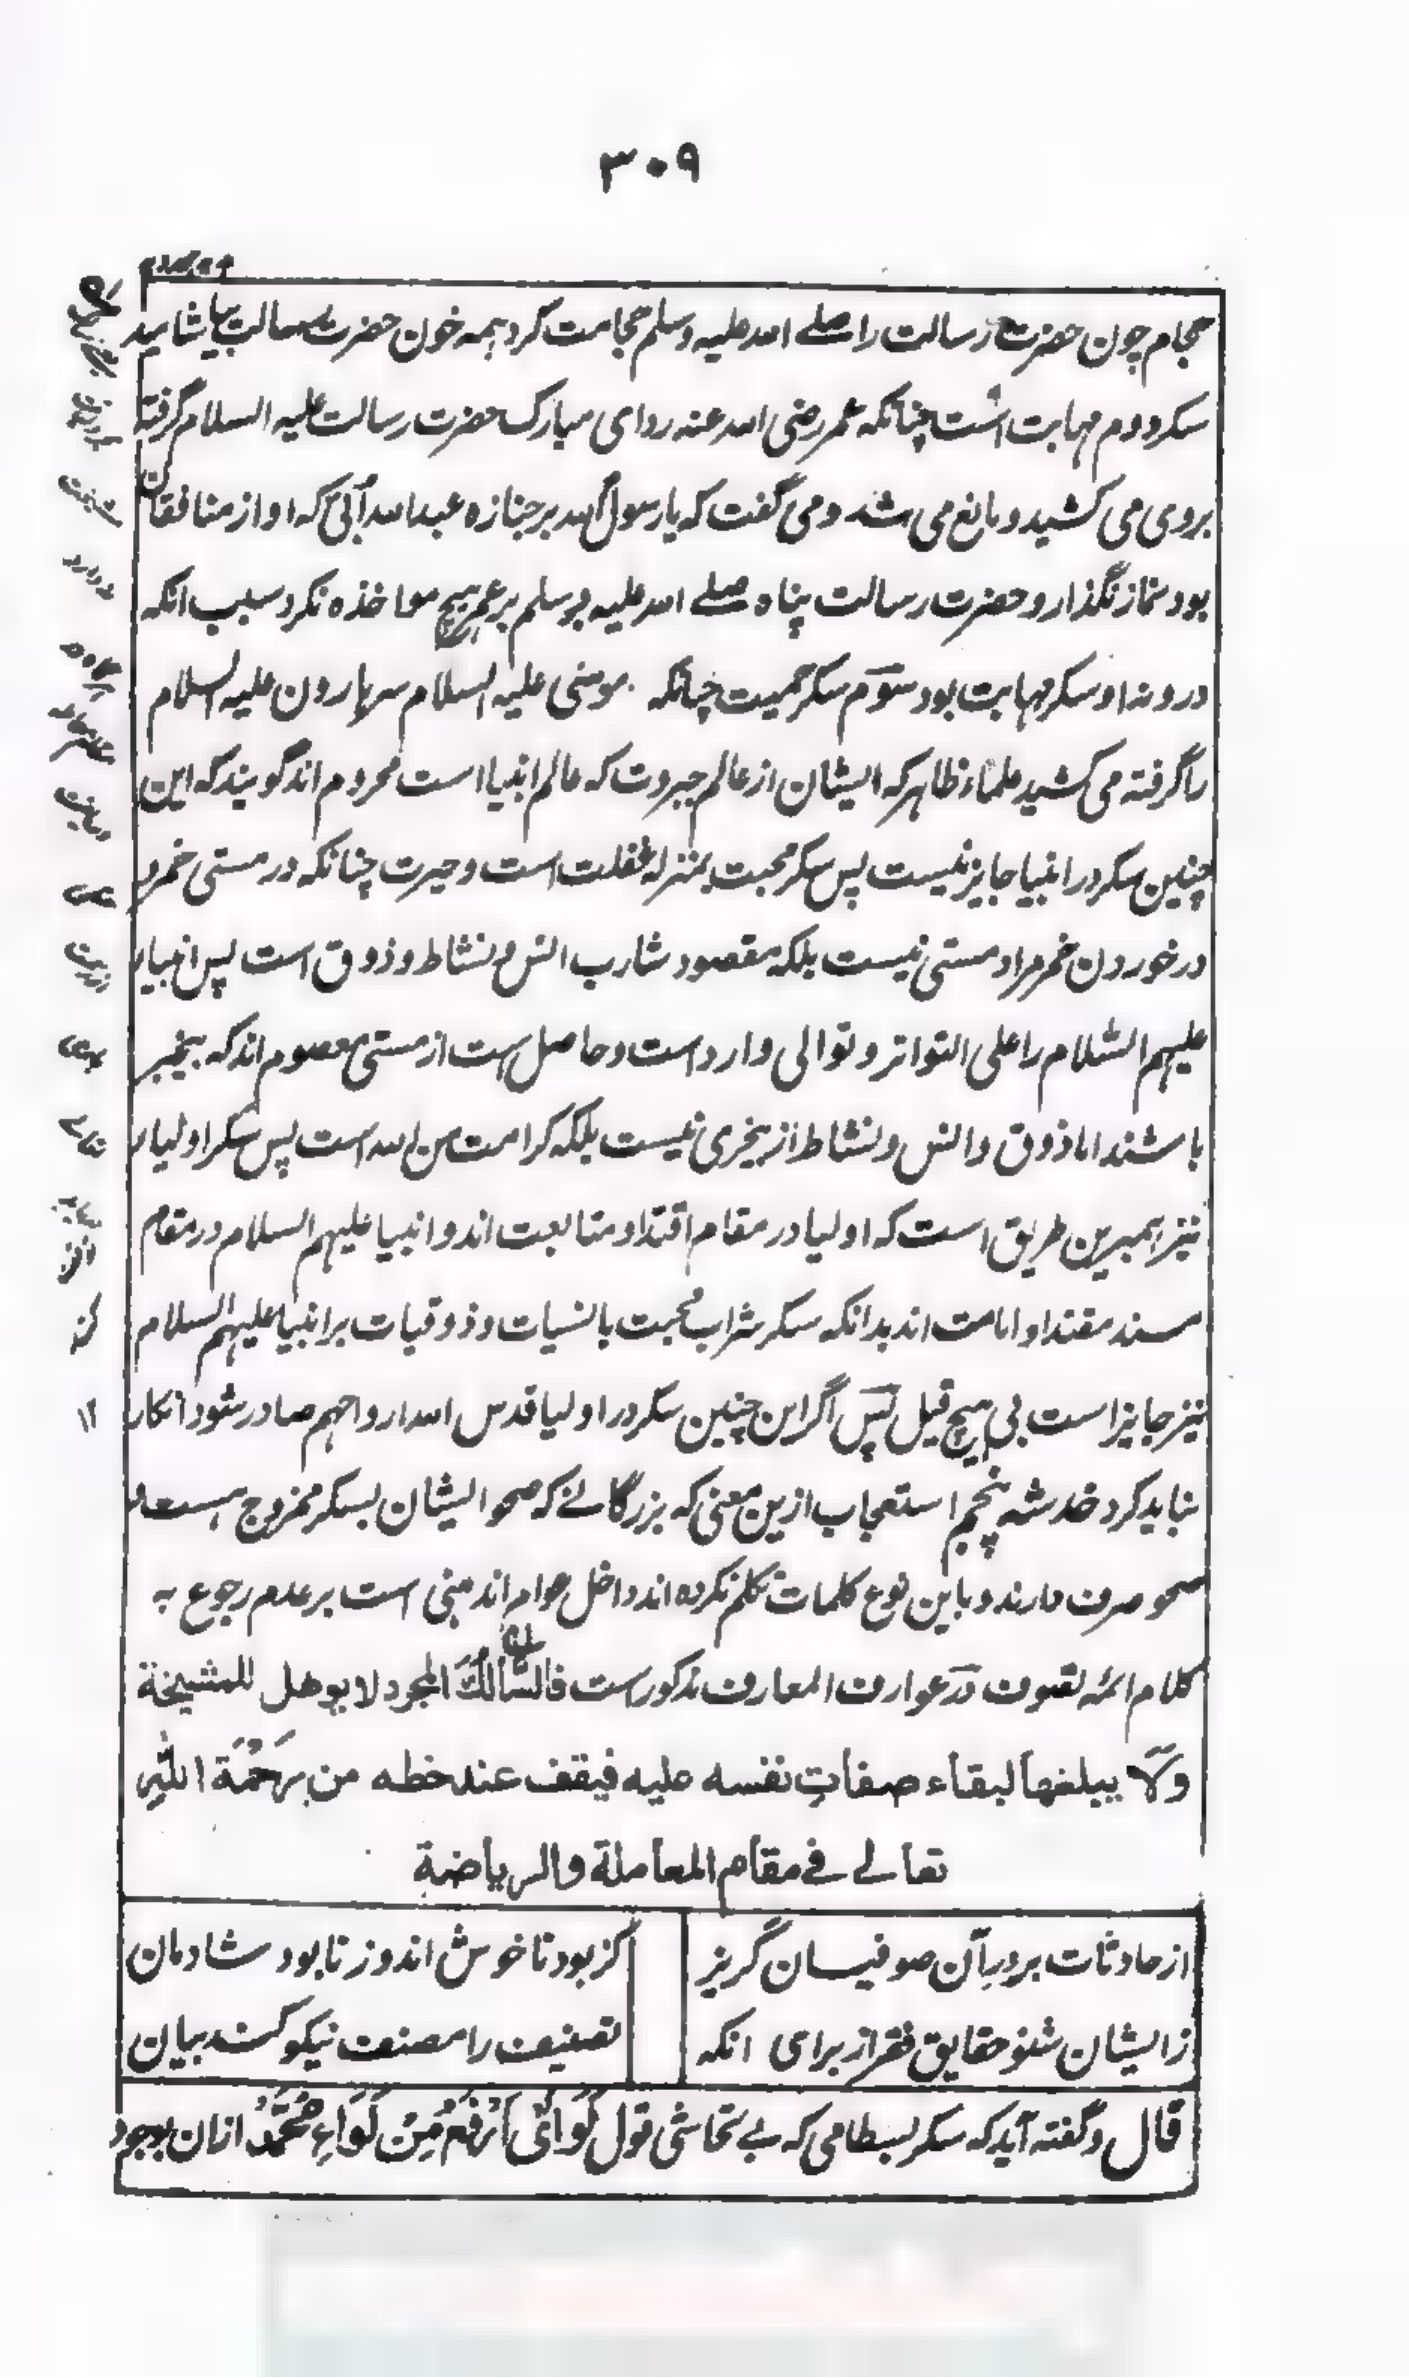 ۳۰۹
حجام چون حضرت رسالت را صلے الله علیه وسلم حجامت کرد همه خون حضرت رسالت بیاشامید
سکر دوم مهابت است چنانکه عمر رضی الله عنه ردای مبارک حضرت رسالت علیه السلام گرفته
بروی می کشید و مانع می شد و می گفت که یا رسول الله بر جنازه عبدالله اُبَی که او از منافقان
بود نماز نگذار و حضرت رسالت پناه صلے الله علیه وسلم بر عمر هیچ مواخذه نکرد سبب انکه
درونه او سکر مهابت بود سوّم سکر حمیت چنانکه موسی علیه السلام سر هارون علیه السلام
را گرفته می کشید علماء ظاهر که ایشان از عالم جبروت که عالم انبیا است محروم اند گویند که این
چنین سکر در انبیا جایز نیست پس سکر محبت بمنزله غفلت است و حیرت چنانکه در مستی خمر و
در خوردن خمر مراد مستی نیست بلکه مقصود شارب انس و نشاط و ذوق است پس انبیاء
علیهم السّلام را علی التواتر و توالی وارد است و حاصل است از مستی معصوم اند که بیخبر
باشند اما ذوق وانس و نشاط از بیخبری نیست بلکه کرامت من الله است پس سکر اولیاء
نیز بهمبرین طریق است که اولیا در مقام اقتدا و متابعت اند و انبیا علیهم السلام در مقام
مسند مقتدا و امامت اند بدانکه سکر شراب محبت بانسیات و ذوقیات بر انبیا علیهم السلام
نیز جایز است بی هیچ قیل پس اگر این چنین سکر در اولیا قدس الله ارواحهم صادر شود انکار
نباید کرد خدشه پنجم استعجاب ازین معنی که بزرگانے که صحو ایشان بسکر ممزوج هست
صحو صرف دارند و باین نوع کلمات تکلم نکرده اند داخل عوام اند مبنی است بر عدم رجوع به
کلام ائمه تصوف در عوارف المعارف مذکور است فالسّالك المجرد لا یوهل للمشیخة
ولا یبلغها لبقاء صفات نفسه علیه فیقف عند حظه من رَحْمَة الله
تعالے فے مقام المعاملة والریاضة
از حادثات بر در آن صوفیان گریز کز بود نا خوش اند و ز نابود شادمان
ز ایشان شنو حقایق فقر از برای انکه تصنیف را مصنف نیکو کند بیان
قال و گفته آید که سکر بسطامی که بے تحاشی قول لَوَائی اَرْفَعُ مِنْ لَوَاءِ مُحَمَّد ازان بوجود